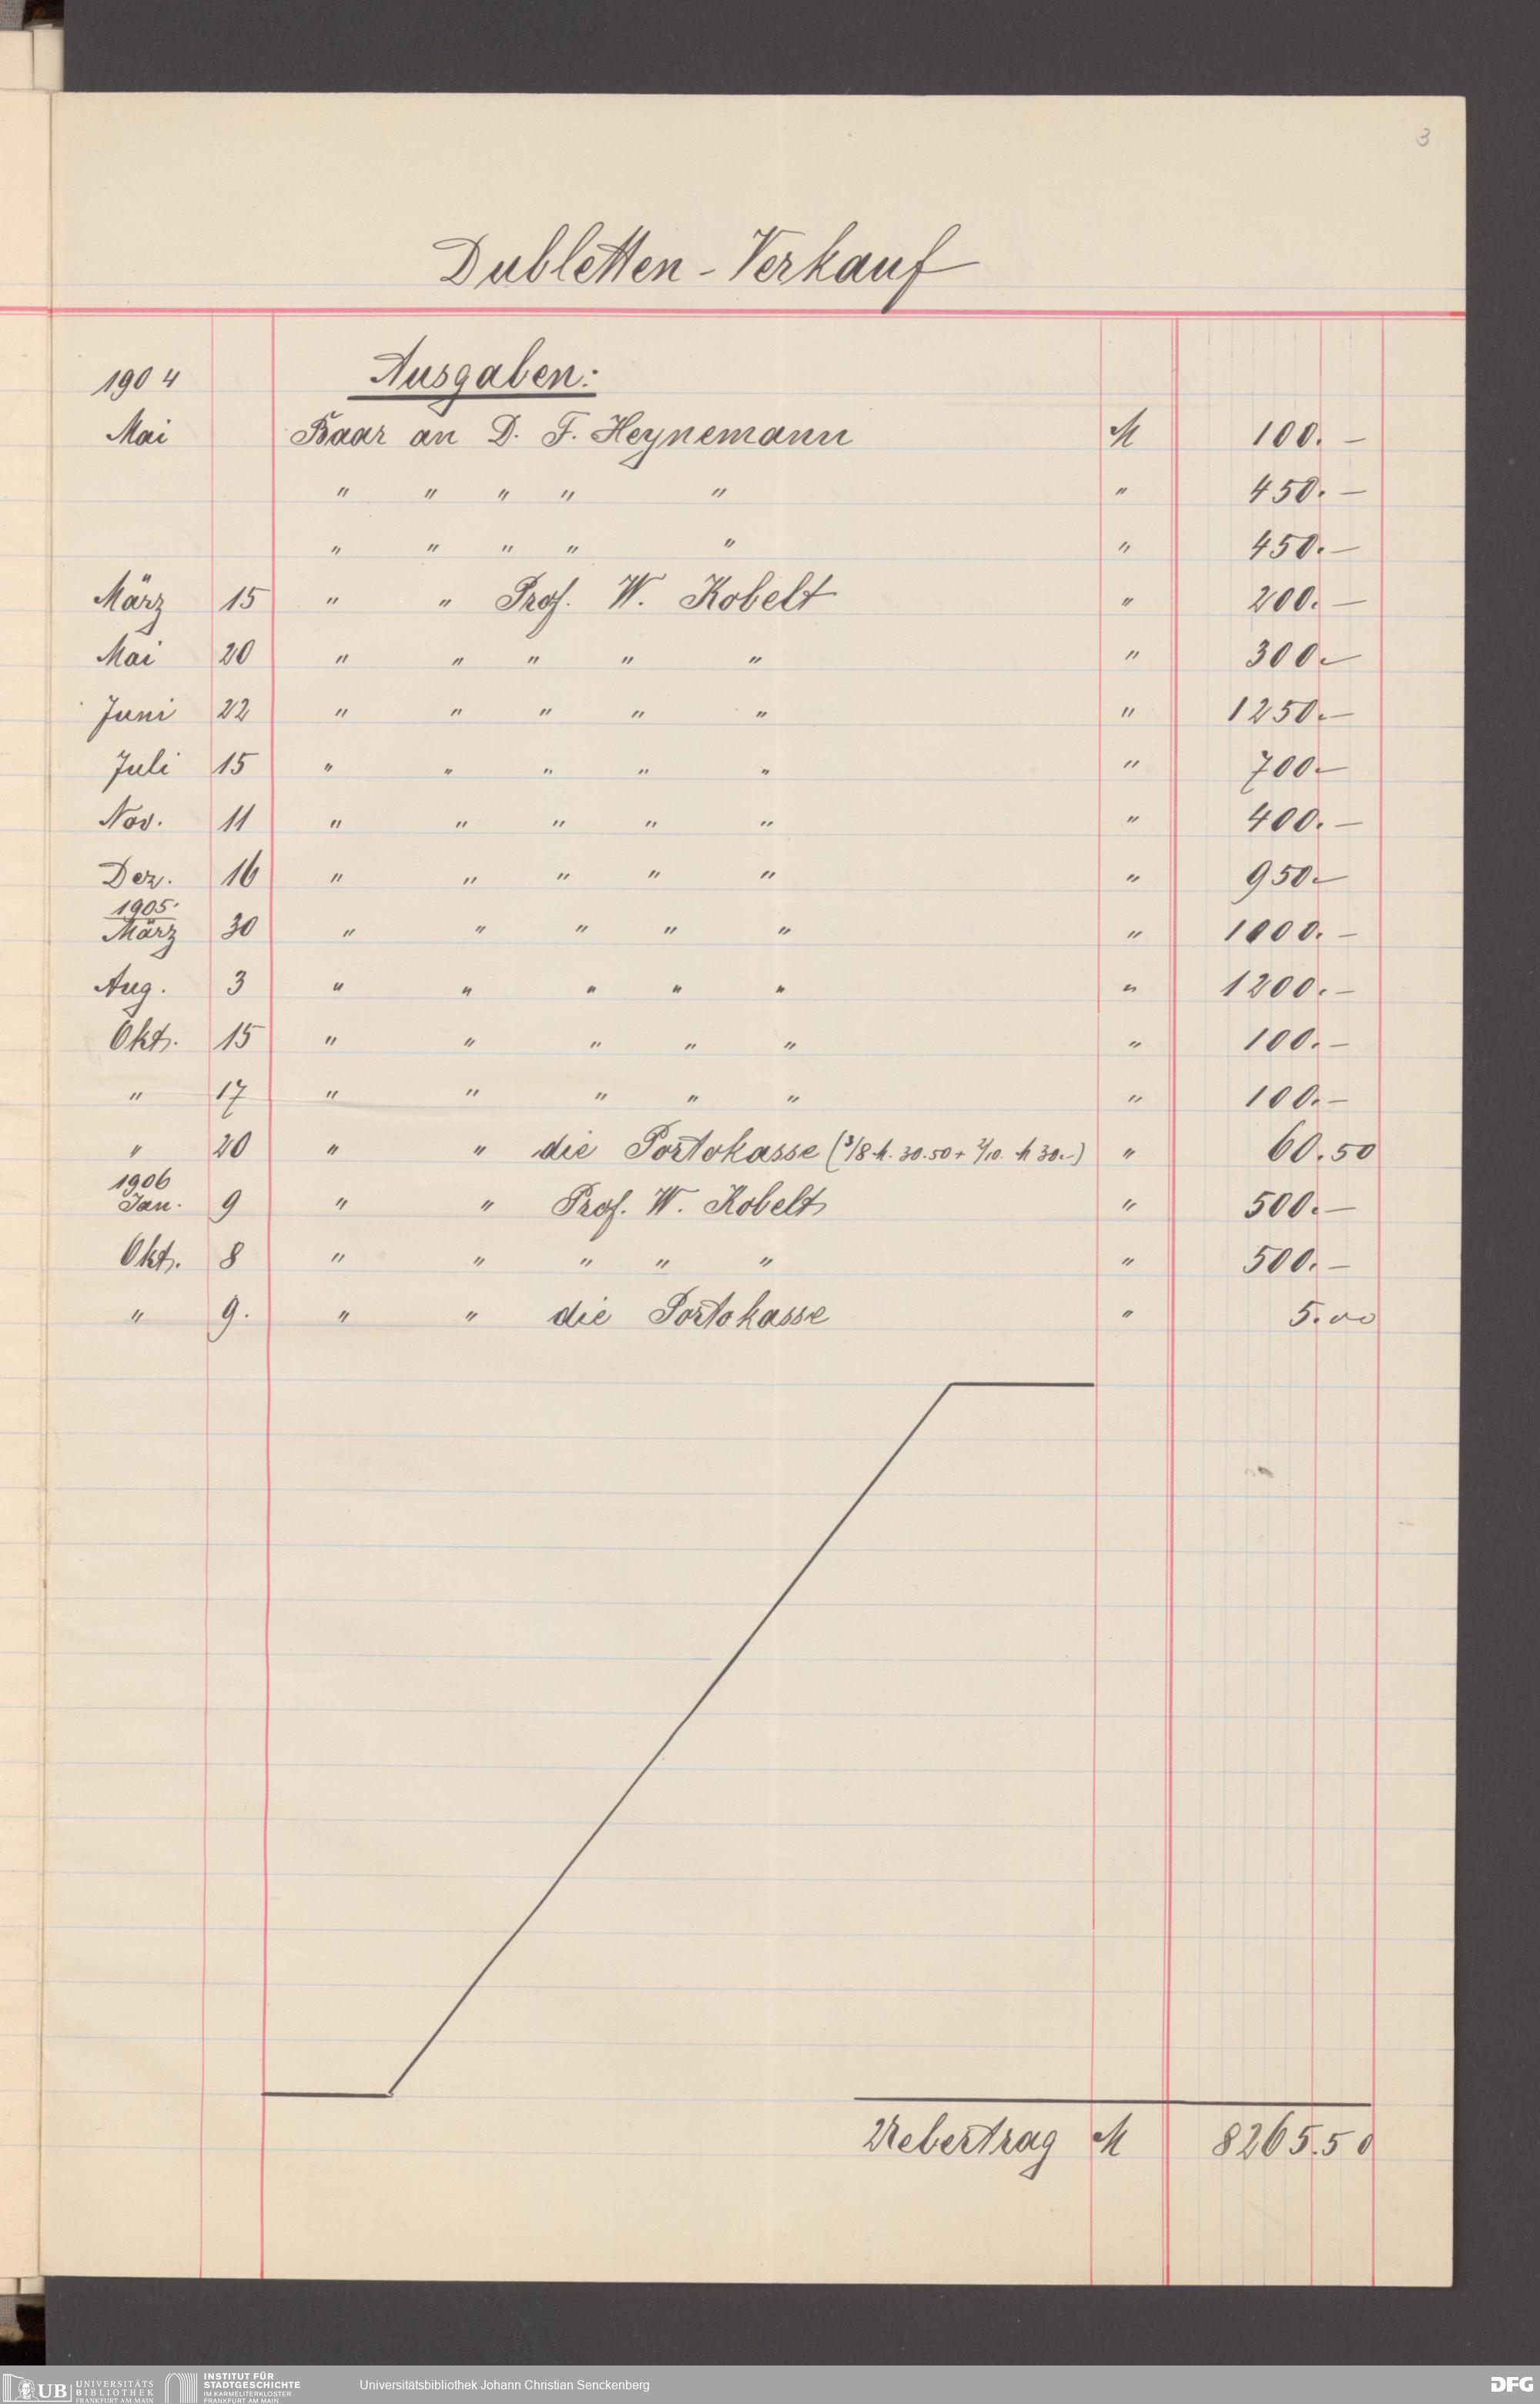 3
Dubletten-Verkauf
1904 Ausgaben:
Mai Baar an D. F. Heynemann M 100.—
" " " " " " 450.—
" " " " " " 450.—
März 15 " " Prof. W. Kobelt " 200.—
Mai 20 " " " " " " 300.—
Juni 22 " " " " " " 1250.—
Juli 15 " " " " " " 700.—
Nov. 11 " " " " " " 400.—
Dez. 16 " " " " " " 950.—
1905.
März 30 " " " " " " 1000.—
Aug. 3 " " " " " " 1200.—
Okt. 15 " " " " " " 100.—
" 17 " " " " " " 100.—
" 20 " " die Portokasse (3/8 M. 30.50 + 2/10. M 30.-) " 60.50
1906
Jan. 9 " " Prof. W. Kobelt " 500.—
Okt. 8 " " " " " " 500.—
" 9. " " die Portokasse " 5.00
Uebertrag M 8265.50
UB UNIVERSITÄTS
BIBLIOTHEK
FRANKFURT AM MAIN
INSTITUT FÜR
STADTGESCHICHTE
IM KARMELITERKLOSTER
FRANKFURT AM MAIN
Universitätsbibliothek Johann Christian Senckenberg
DFG